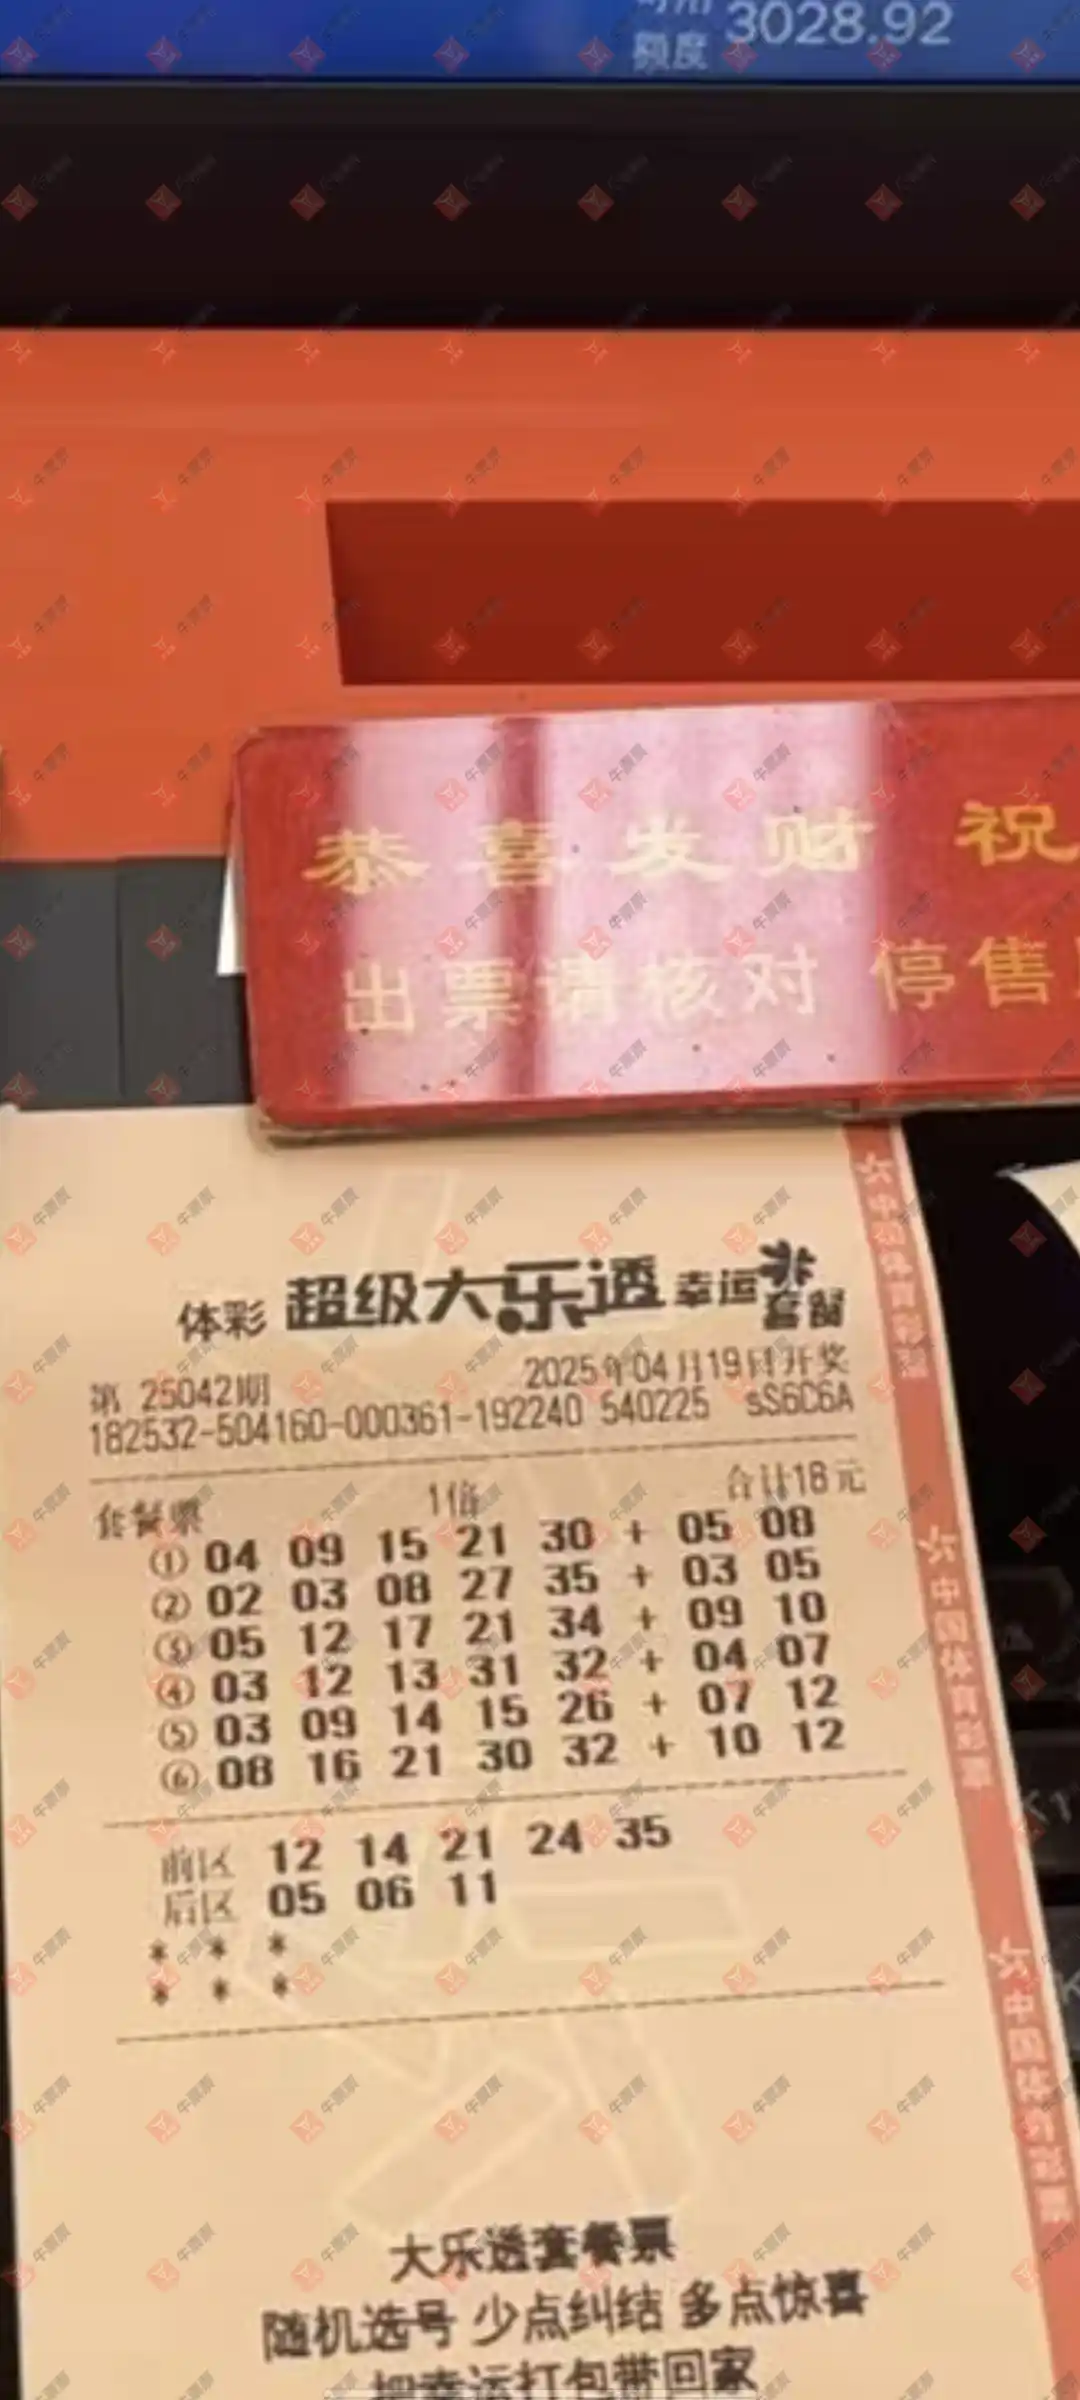 3028.92
额度
恭喜发财 祝
出票请核对 停售
体彩 超级大乐透 幸运 套餐
第 25042期 2025年04月19日开奖
182532-504160-000361-192240 540225 sS6C6A
套餐票 1倍 合计18元
① 04 09 15 21 30 + 05 08
② 02 03 08 27 35 + 03 05
③ 05 12 17 21 34 + 09 10
④ 03 12 13 31 32 + 04 07
⑤ 03 09 14 15 26 + 07 12
⑥ 08 16 21 30 32 + 10 12
前区 12 14 21 24 35
后区 05 06 11
* * *
* * *
大乐透套餐票
随机选号 少点纠结 多点惊喜
把幸运打包带回家
中国体育彩票
中国体育彩票
中国体育彩票
牛票票